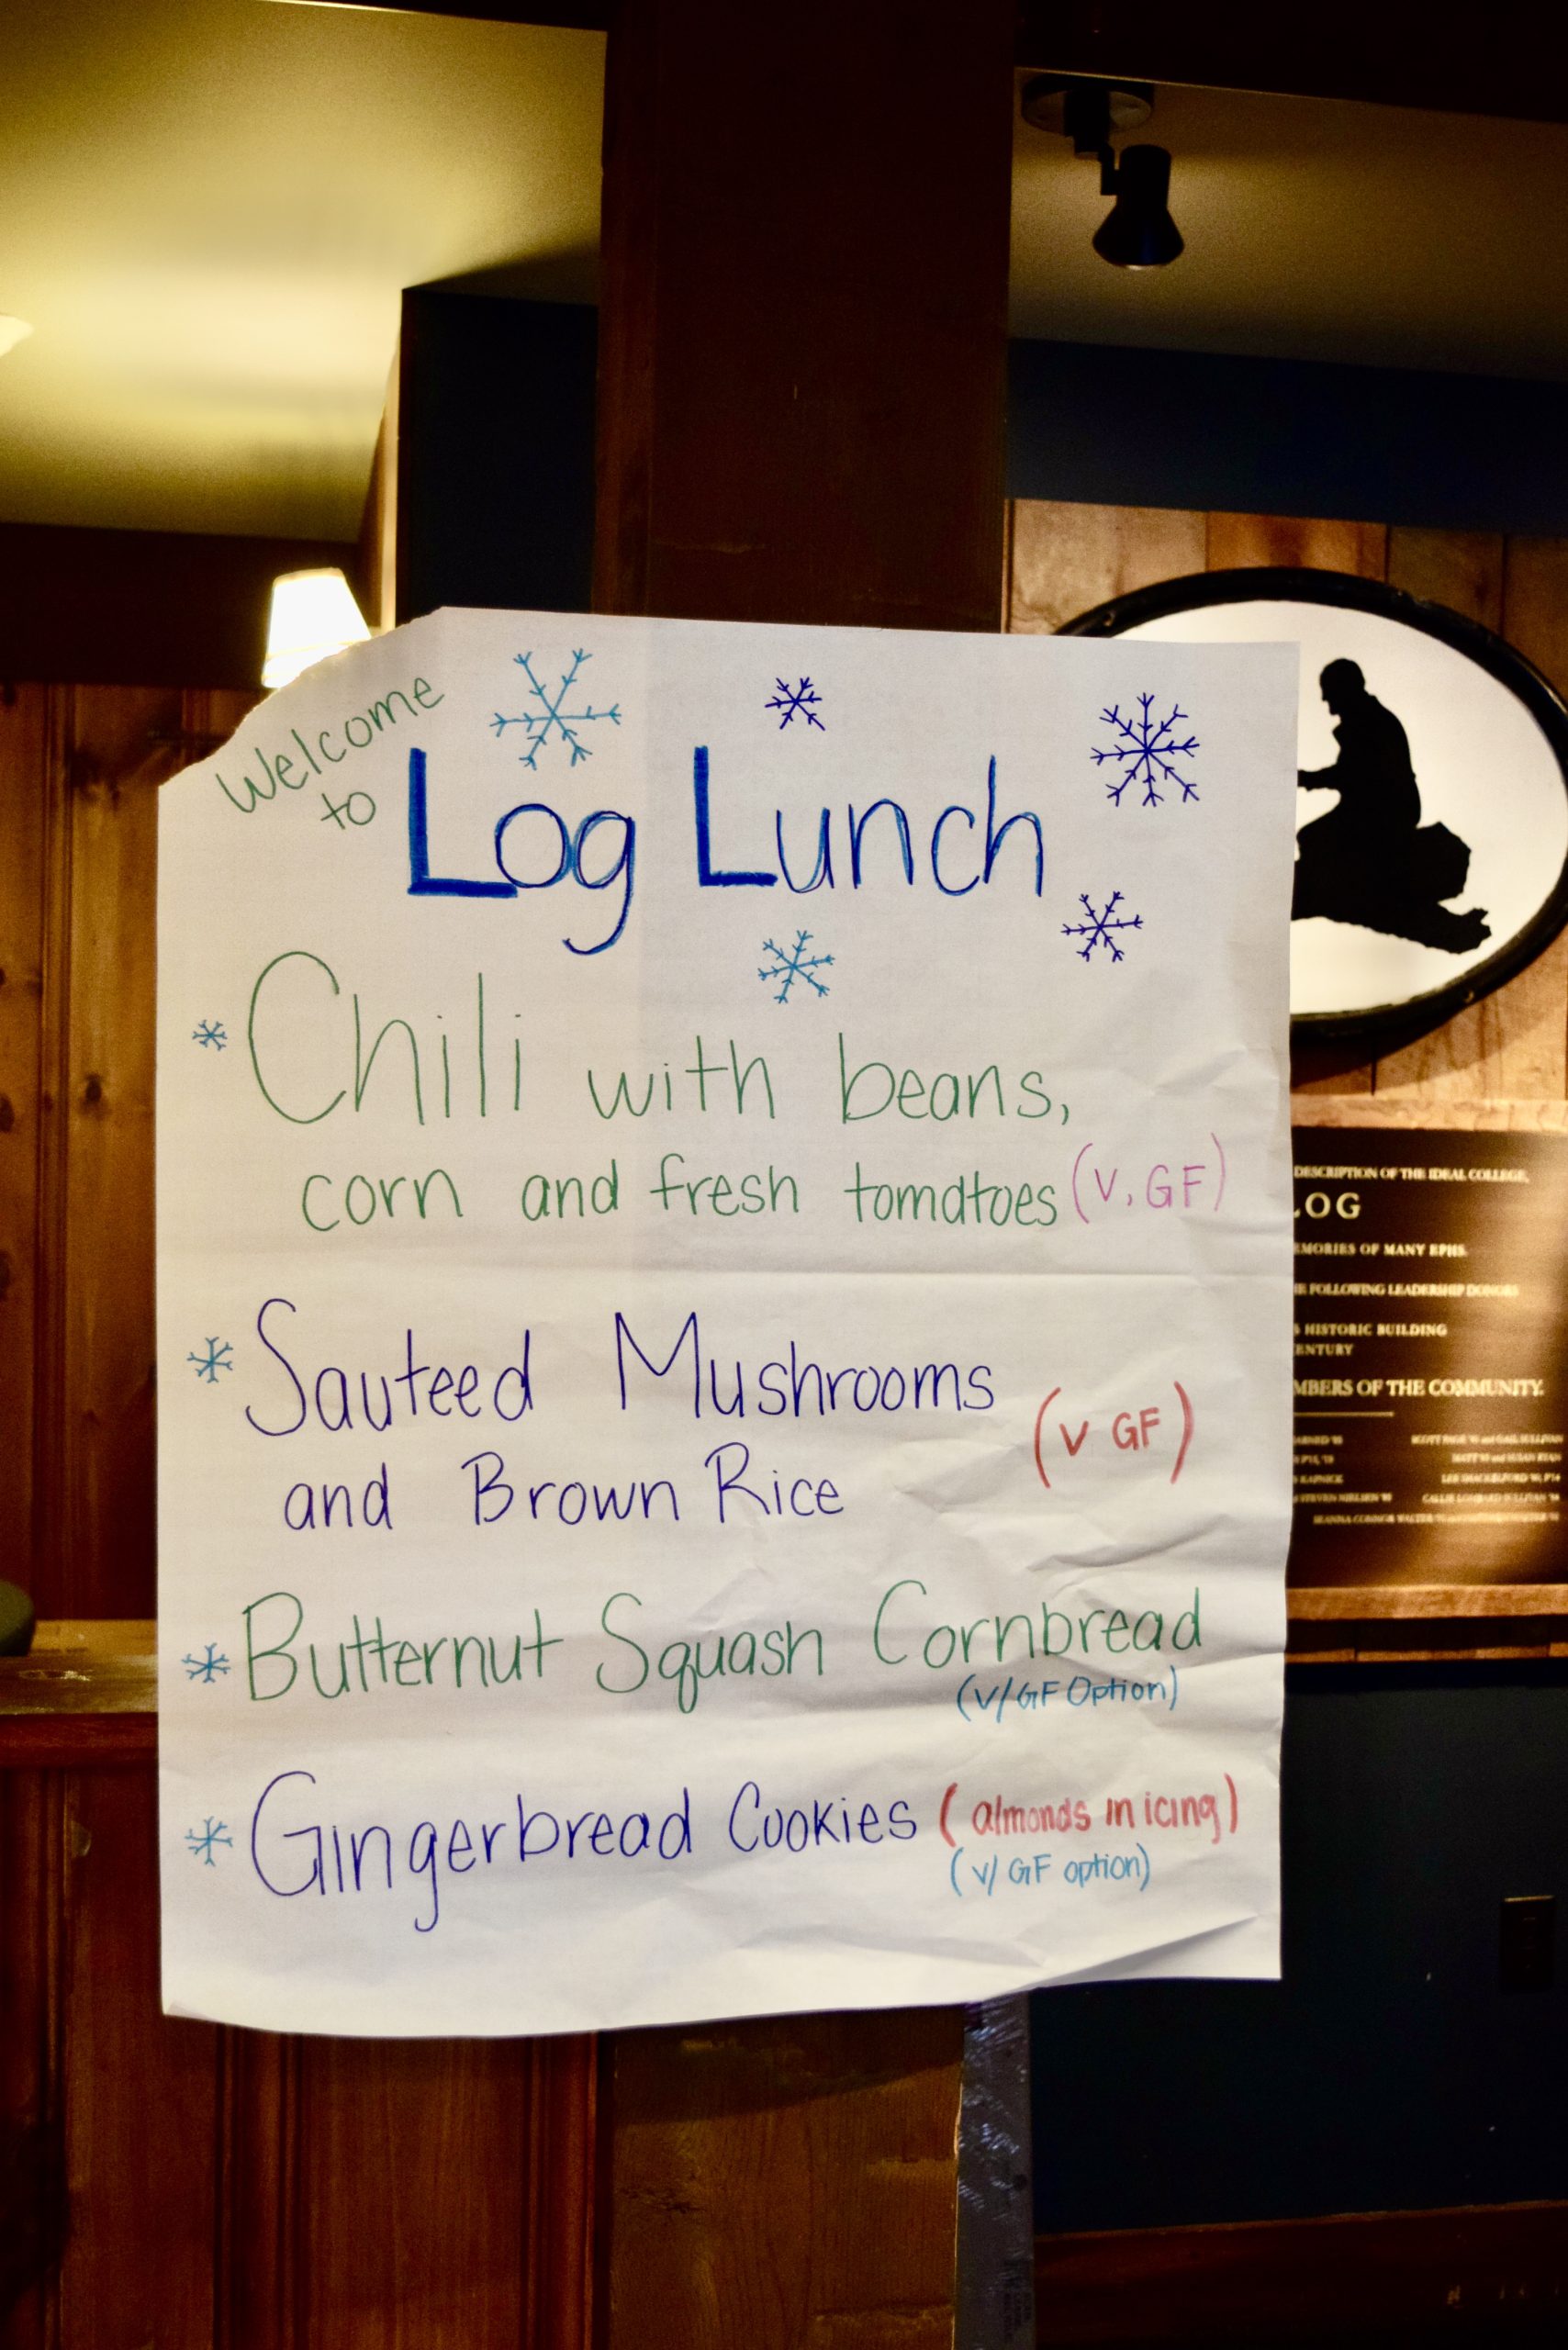 Welcome
to
Log Lunch
Chili with beans,
corn and fresh tomatoes (V, GF)
Sauteed Mushrooms
and Brown Rice
(V GF)
Butternut Squash Cornbread
(V/GF Option)
Gingerbread Cookies (almonds in icing)
(V/ GF option)
DESCRIPTION OF THE IDEAL COLLEGE,
OG
EMORIES OF MANY EPHS.
E FOLLOWING LEADERSHIP DONORS
S HISTORIC BUILDING
ENTURY
MBERS OF THE COMMUNITY.